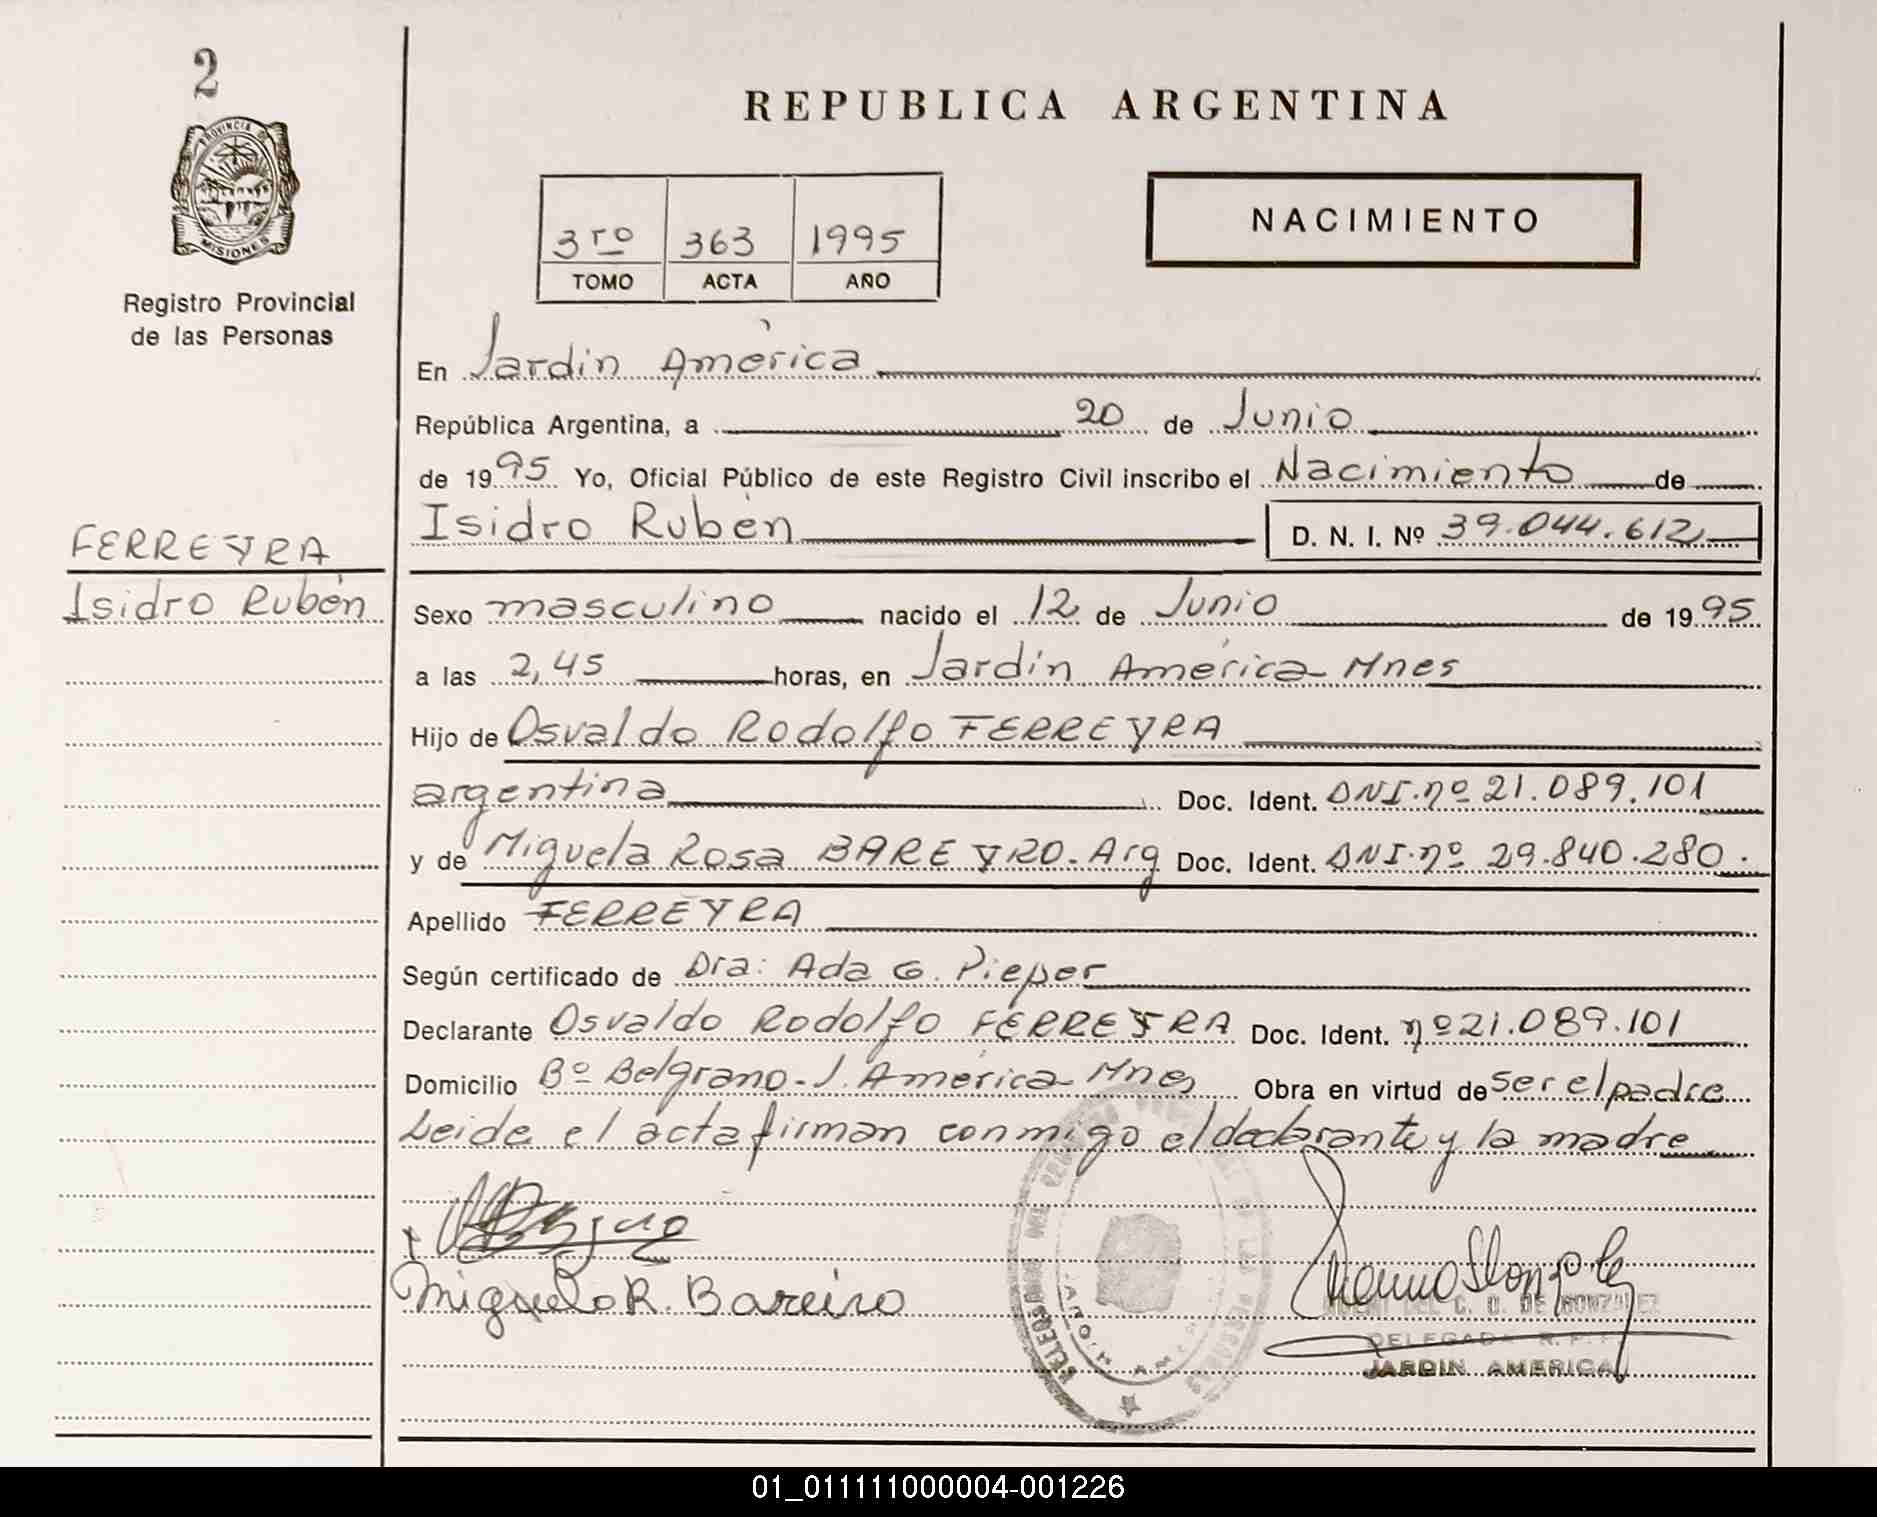 2
PROVINCIA DE
MISIONES
Registro Provincial
de las Personas
FERREYRA
Isidro Rubén
REPUBLICA ARGENTINA
3ro 363 1995
TOMO ACTA AÑO
NACIMIENTO
En Jardín América
República Argentina, a 20 de Junio
de 1995 Yo, Oficial Público de este Registro Civil inscribo el Nacimiento de
Isidro Rubén D. N. I. Nº 39.044.612
Sexo masculino nacido el 12 de Junio de 1995
a las 2,45 horas, en Jardín América Mnes
Hijo de Osvaldo Rodolfo FERREYRA
argentina Doc. Ident. DNI.nº 21.089.101
y de Miguela Rosa BAREYRO. Arg Doc. Ident. DNI.nº 29.840.280.
Apellido FERREYRA
Según certificado de Dra: Ada G. Pieper
Declarante Osvaldo Rodolfo FERREYRA Doc. Ident. nº 21.089.101
Domicilio Bº Belgrano-J. América-Mnes Obra en virtud de ser el padre
Leida el acta firman conmigo el declarante y la madre
Miguela R. Bareiro
DEL C. D. DE GONZALEZ
DELEGADA R. P. P.
JARDIN AMERICA
01_011111000004-001226